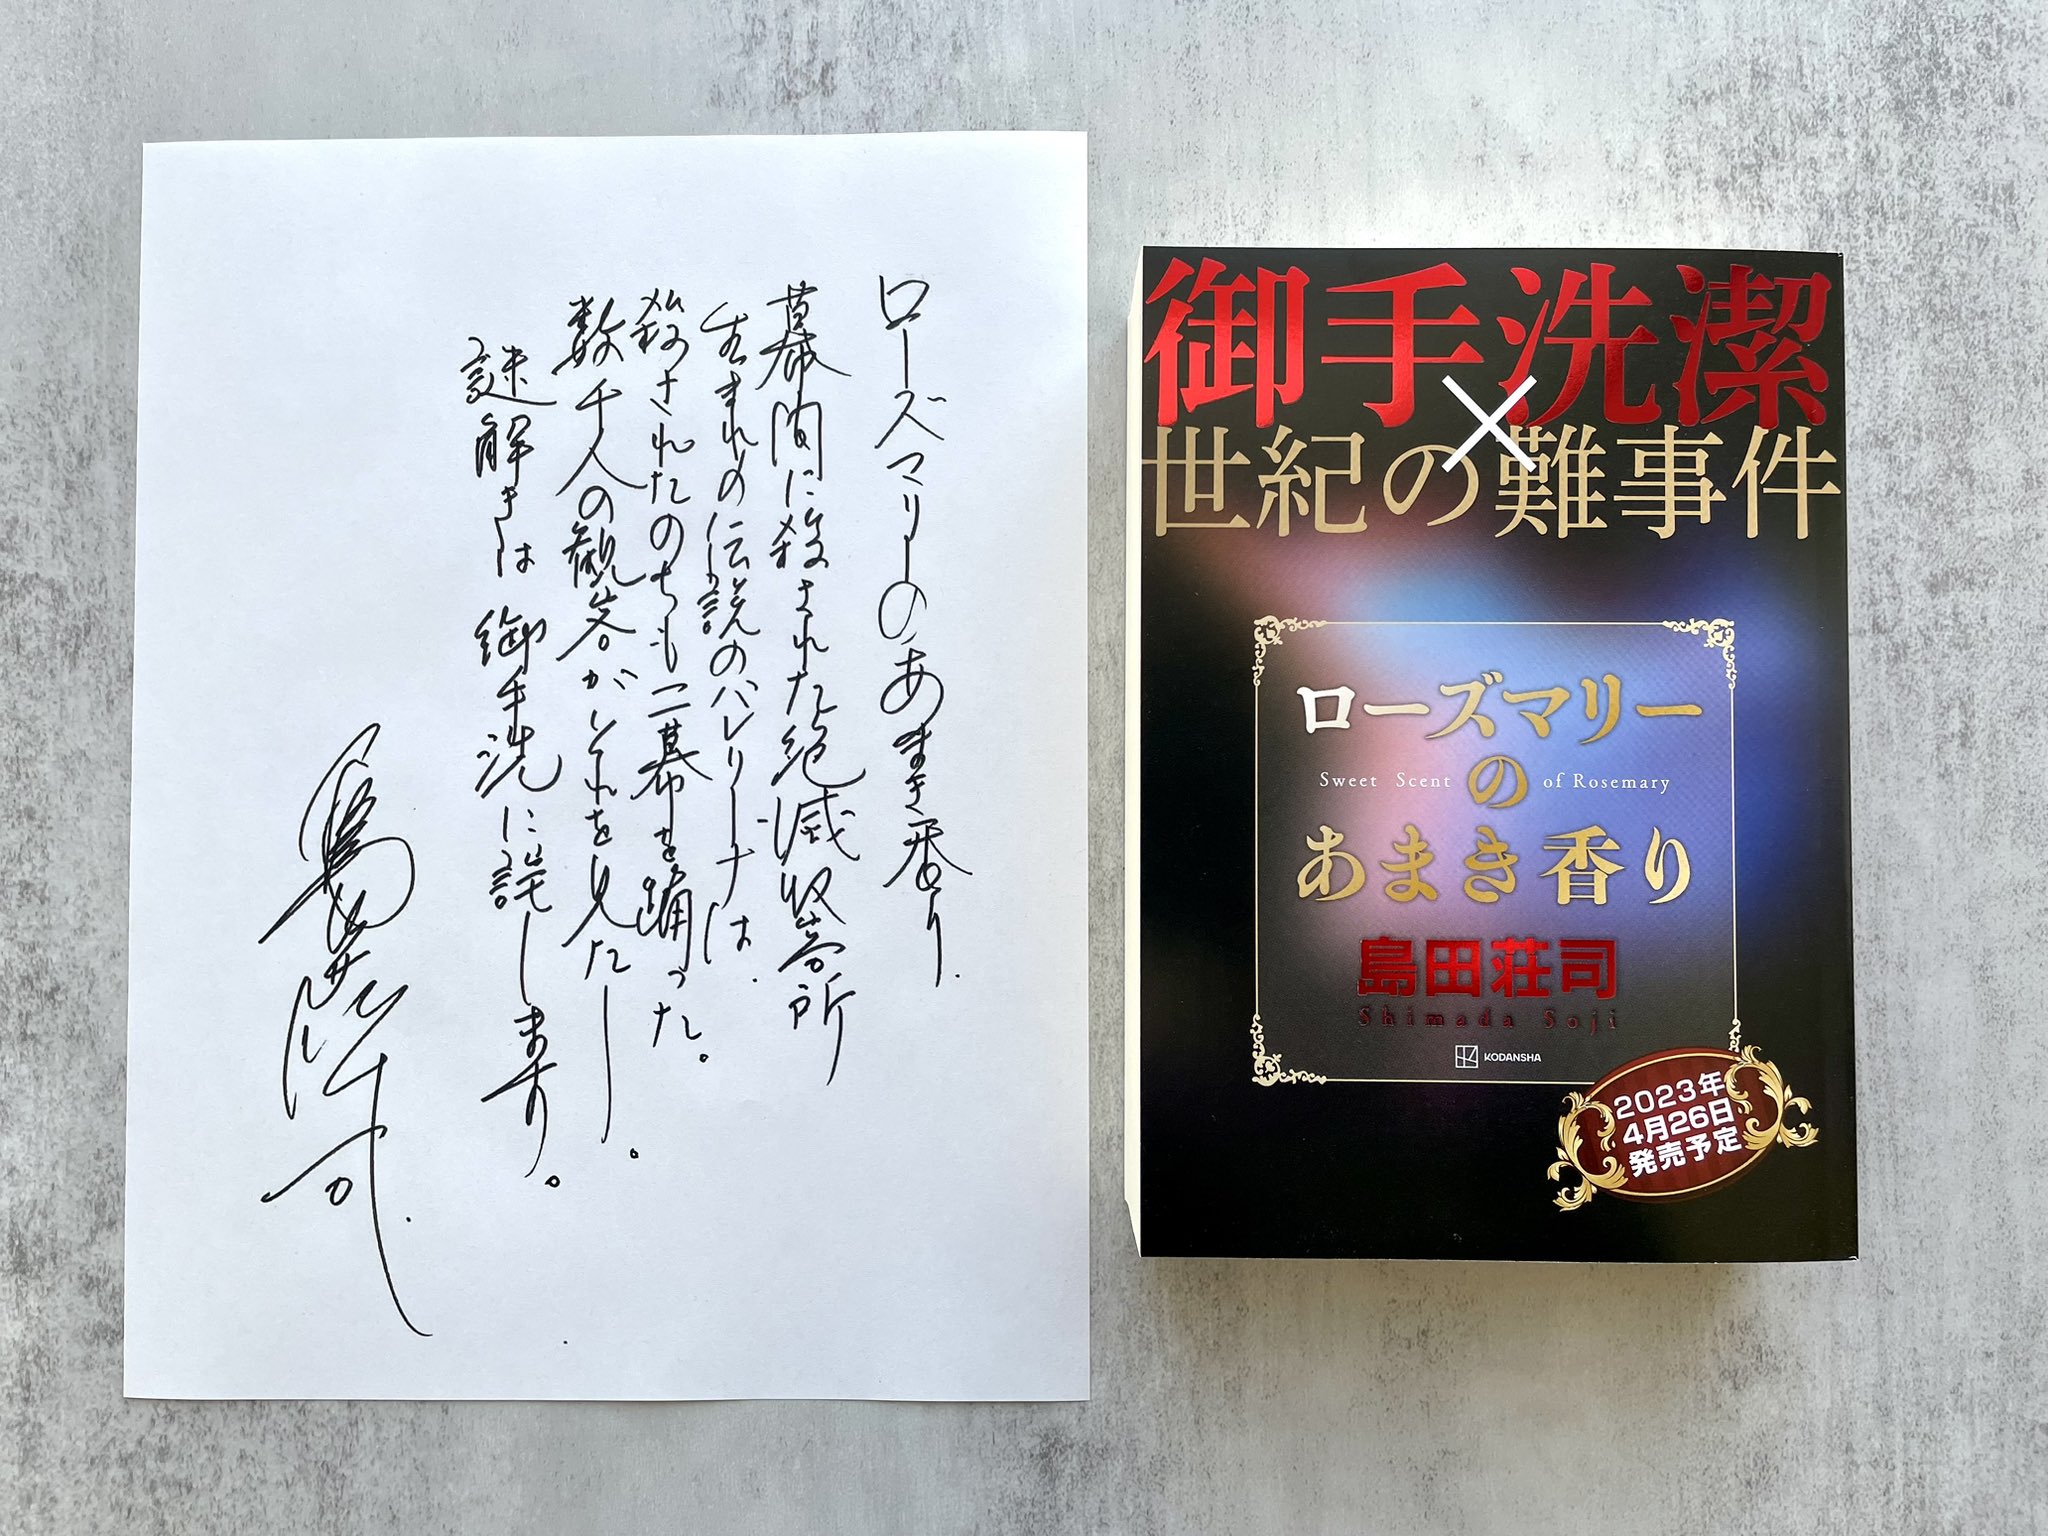 ローズマリーのあまき香り
幕間に殺された絶滅収容所
生まれの伝説のバレリーナは
殺されたのちも二幕を踊った。
数千人の観客がそれを見た—。
謎解きは御手洗に託します。
島田荘司
御手洗潔
×
世紀の難事件
ローズマリー
の
Sweet Scent of Rosemary
あまき香り
島田荘司
Shimada Soji
KODANSHA
2023年
4月26日
発売予定